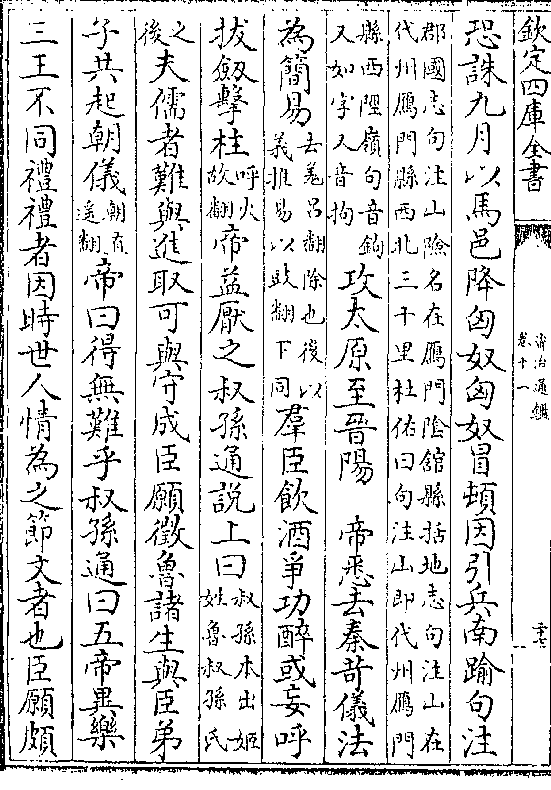 欽定四庫全書
資治通鑑
卷十一
恐誅九月以馬邑降匈奴匈奴冒頓因引兵南踰句注
郡國志句注山險名在鴈門陰館縣括地志句注山在
代州鴈門縣西北三十里杜佑曰句注山即代州鴈門
縣西陘嶺句音鉤
又如字又音拘
攻太原至晉陽 帝悉去秦苛儀法
為簡易
去羗呂翻除也後以
義推易以豉翻下同
羣臣飲酒爭功醉或妄呼
拔劒擊柱
呼火
故翻
帝益厭之叔孫通說上曰
叔孫本出姬
姓魯叔孫氏
之
後
夫儒者難與進取可與守成臣願徵魯諸生與臣弟
子共起朝儀
朝直
遥翻
帝曰得無難乎叔孫通曰五帝異樂
三王不同禮禮者因時世人情為之節文者也臣願頗